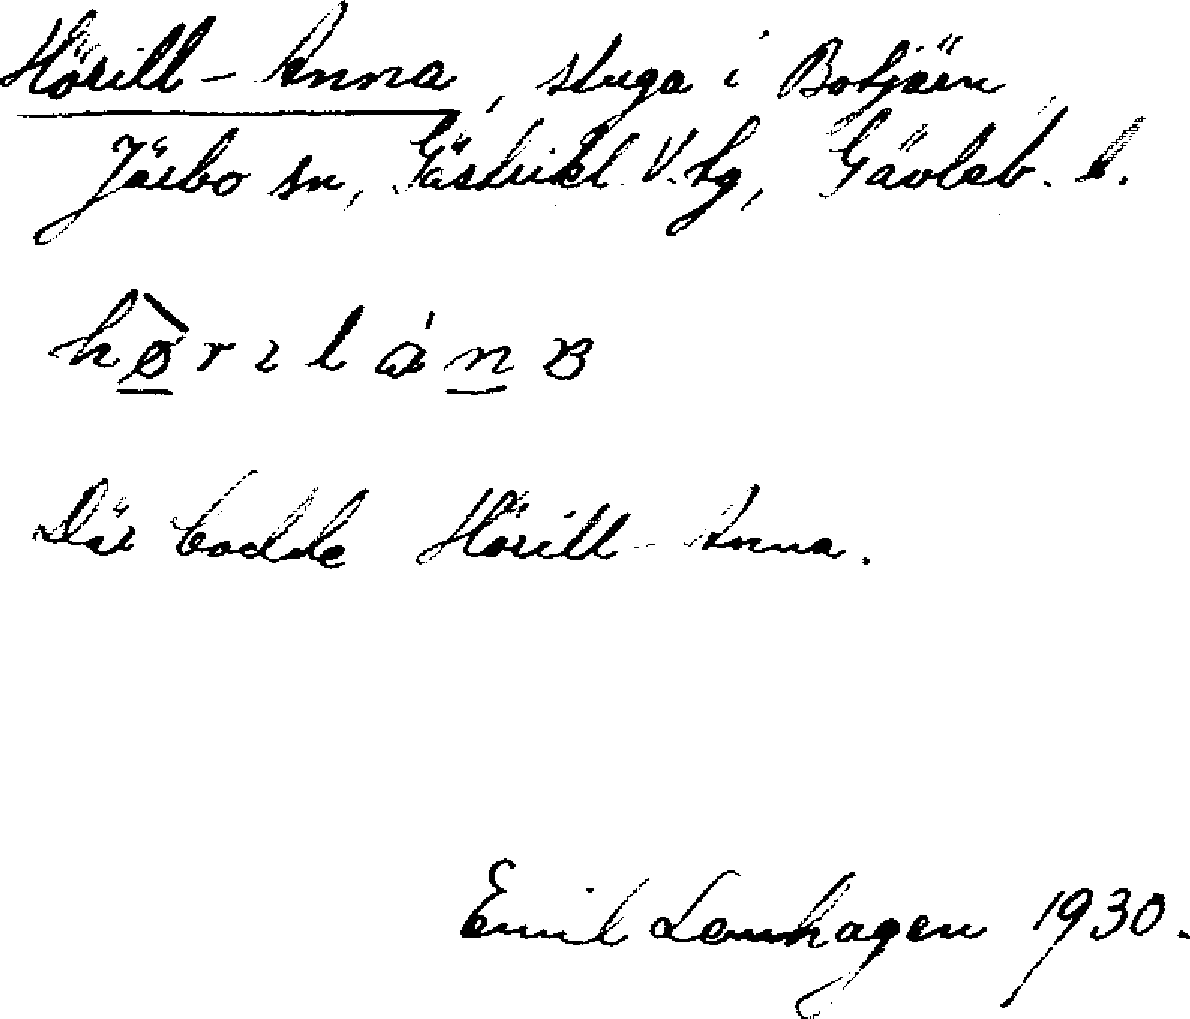 Hörill-Anna, stuga i Botjärn,
Järbo sn, Gästrikl. V. tg, Gävleb. l.
hø̀rɪlánɐ
Där bodde Hörill-Anna.
Emil Lennhagen 1930.